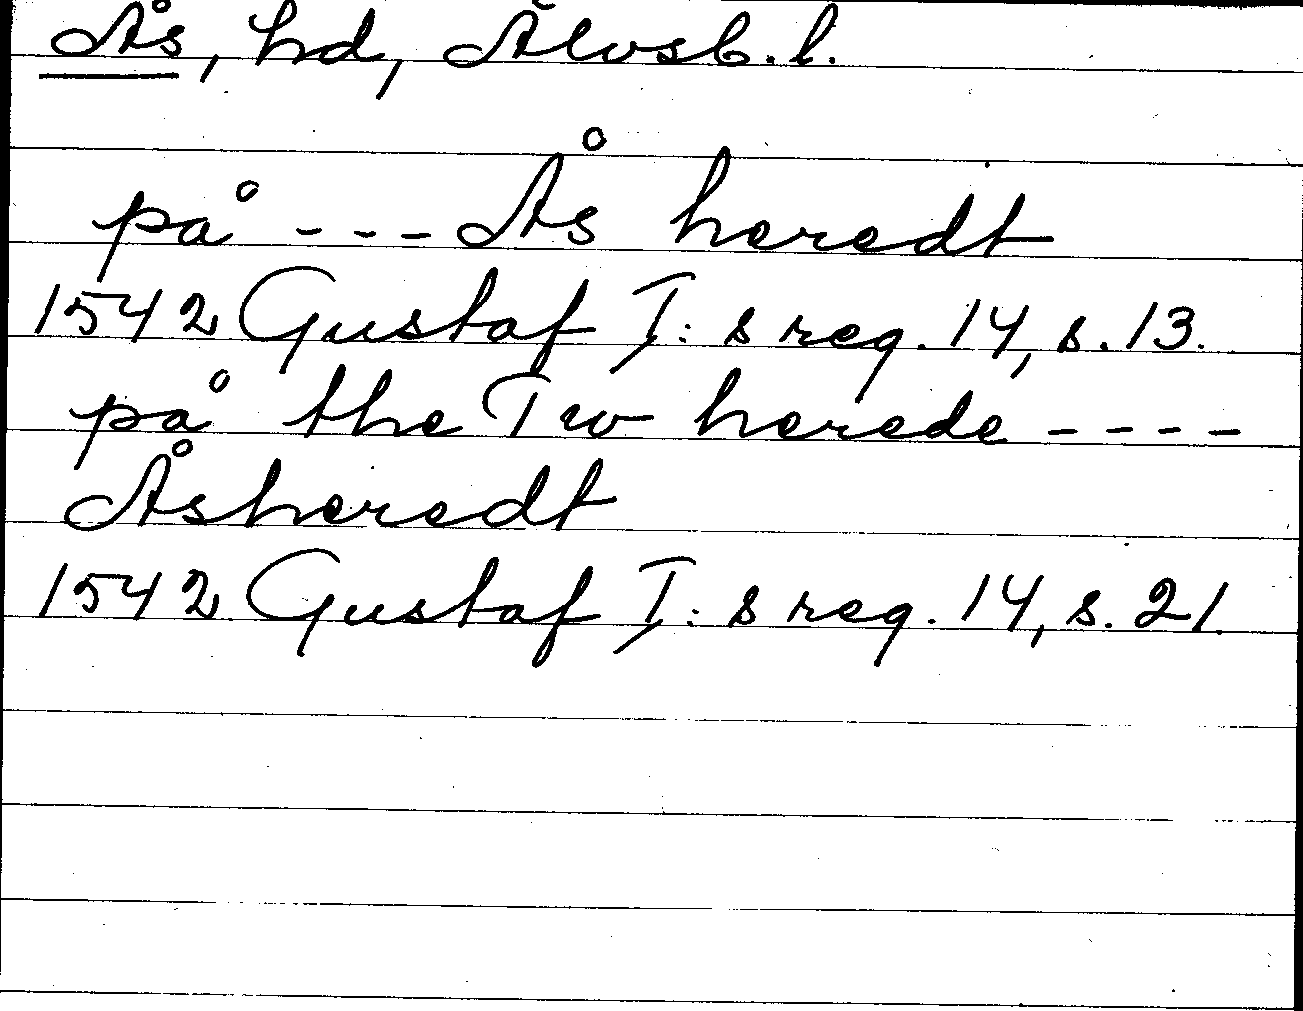 Ås, hd, Älvsb. l.
på --- Ås heredt
1542 Gustaf I:s reg. 14, s. 13.
på the Tw herede ----
Åsheredt
1542 Gustaf I:s reg. 14, s. 21.